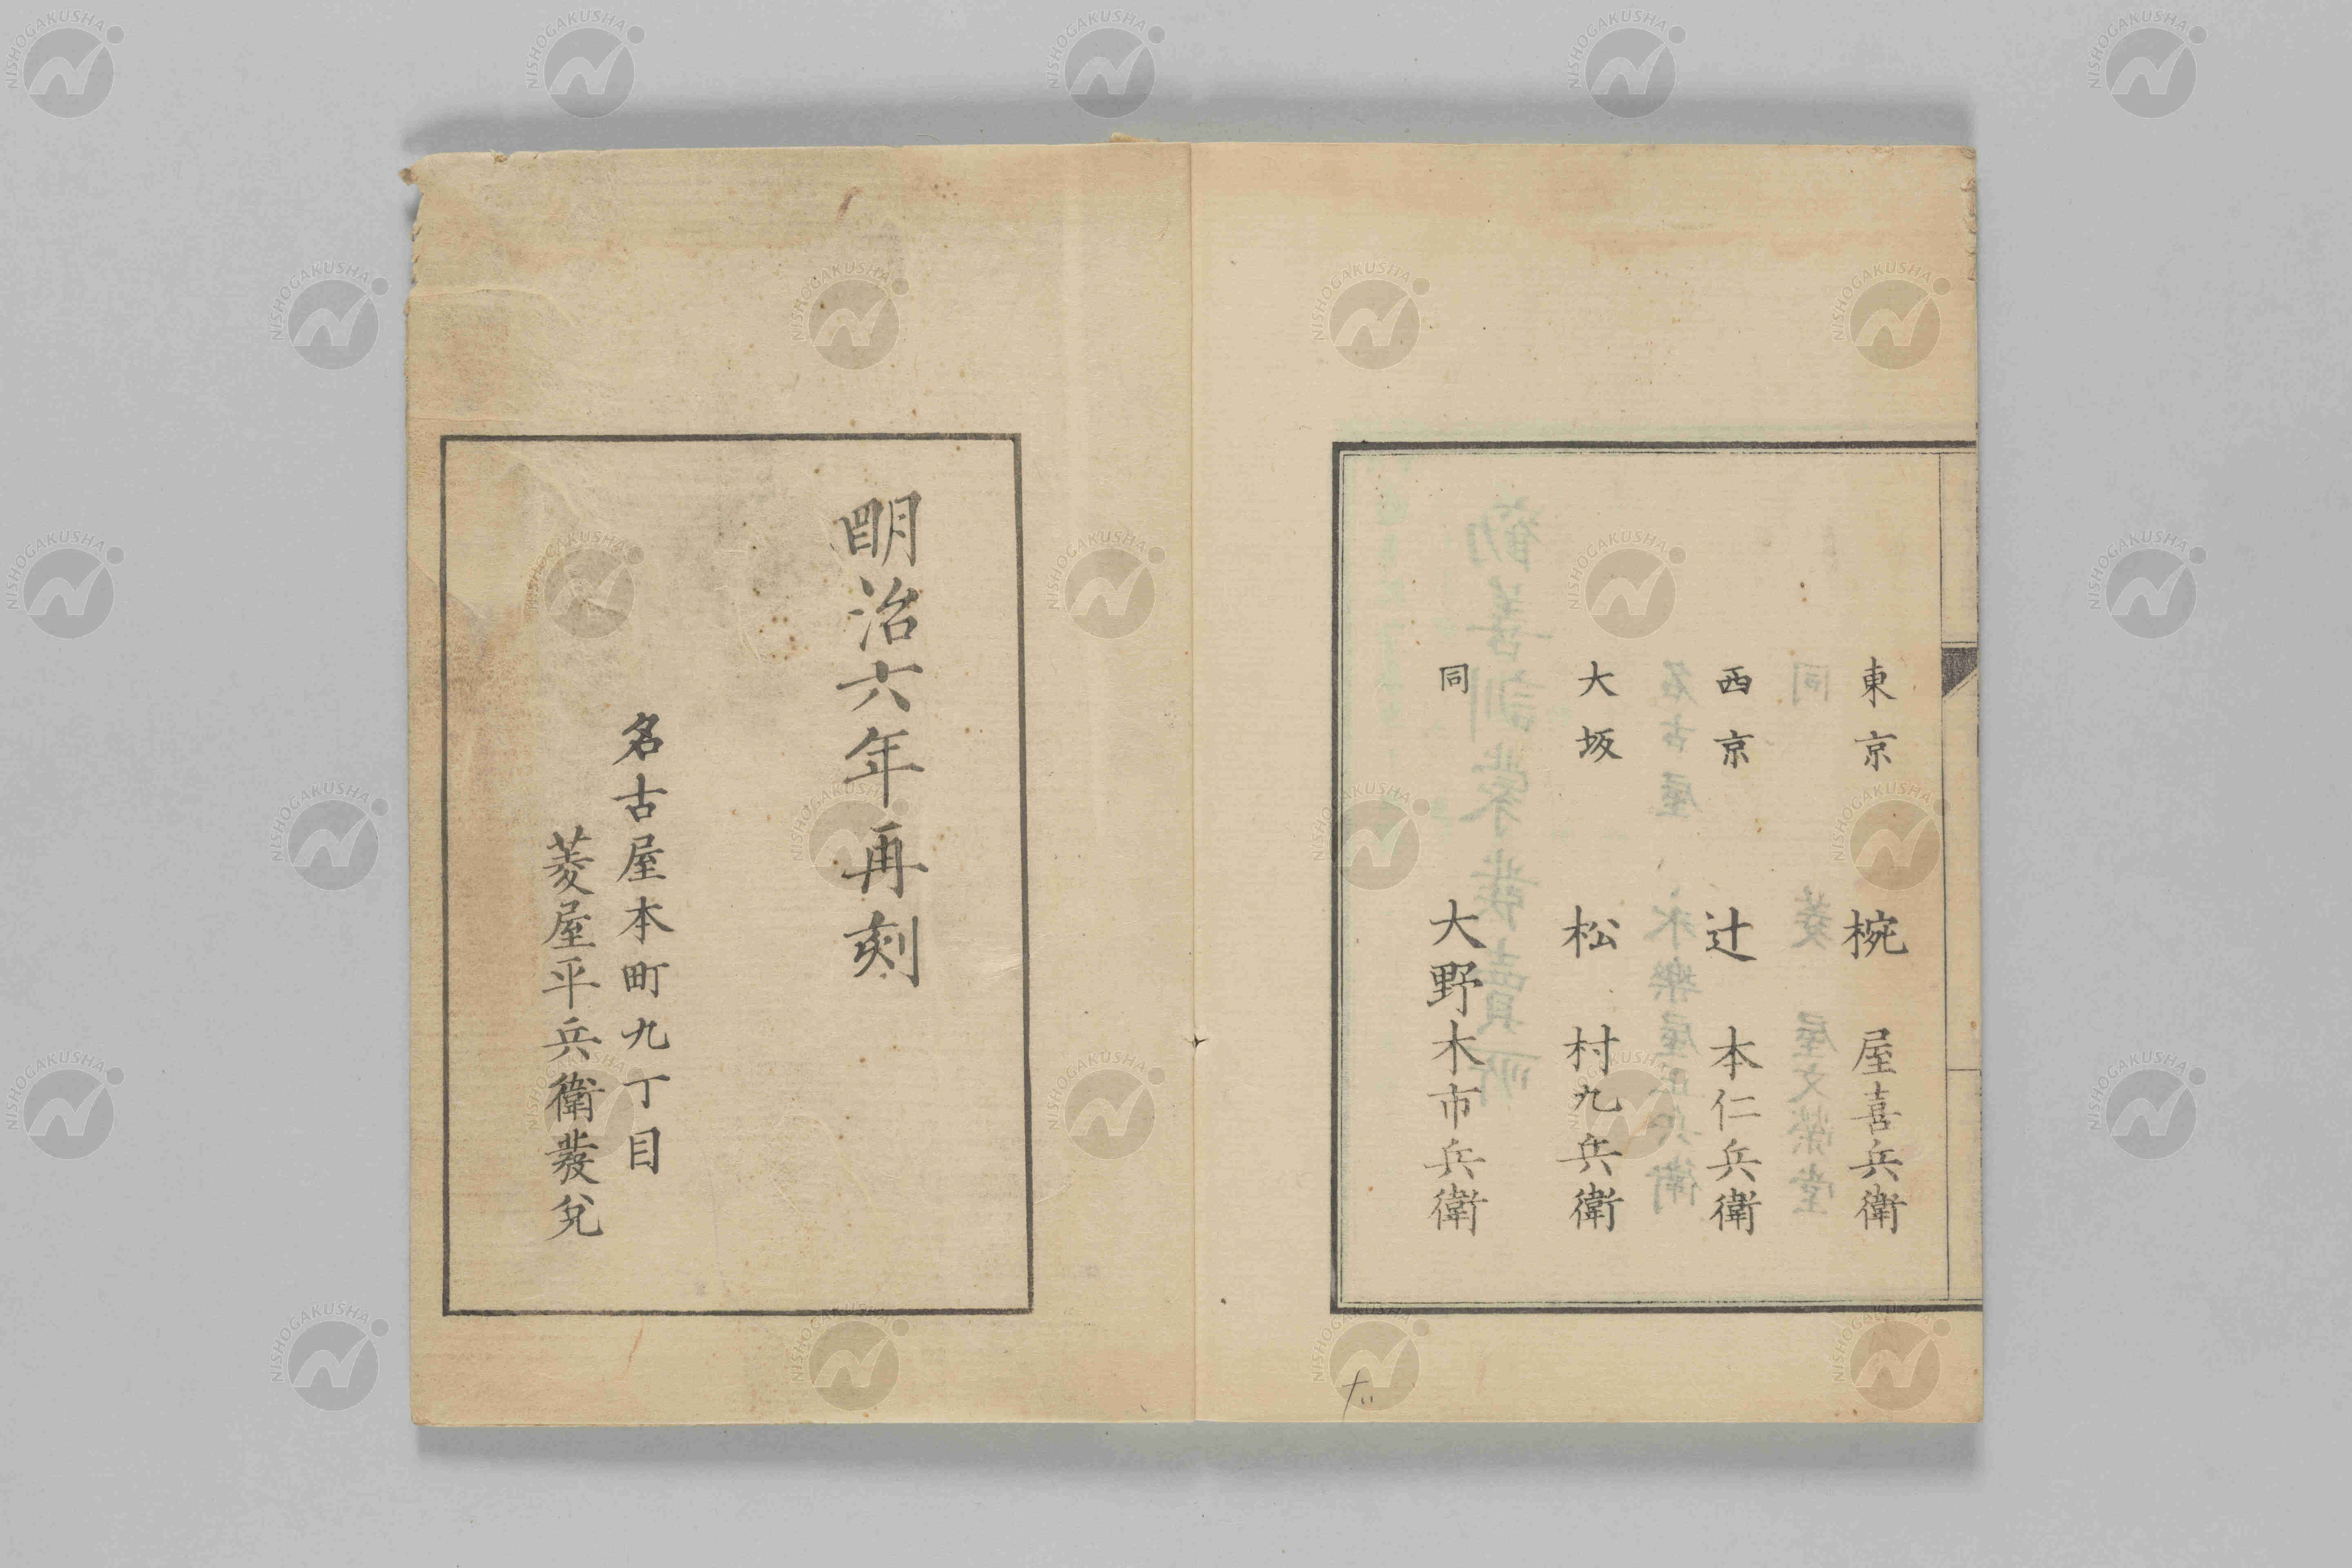 東京 椀屋喜兵衛
西京 辻本仁兵衛
大坂 松村九兵衛
同 大野木市兵衛
明治六年再刻
名古屋本町九丁目
菱屋平兵衛發兌
NISHOGAKUSHA